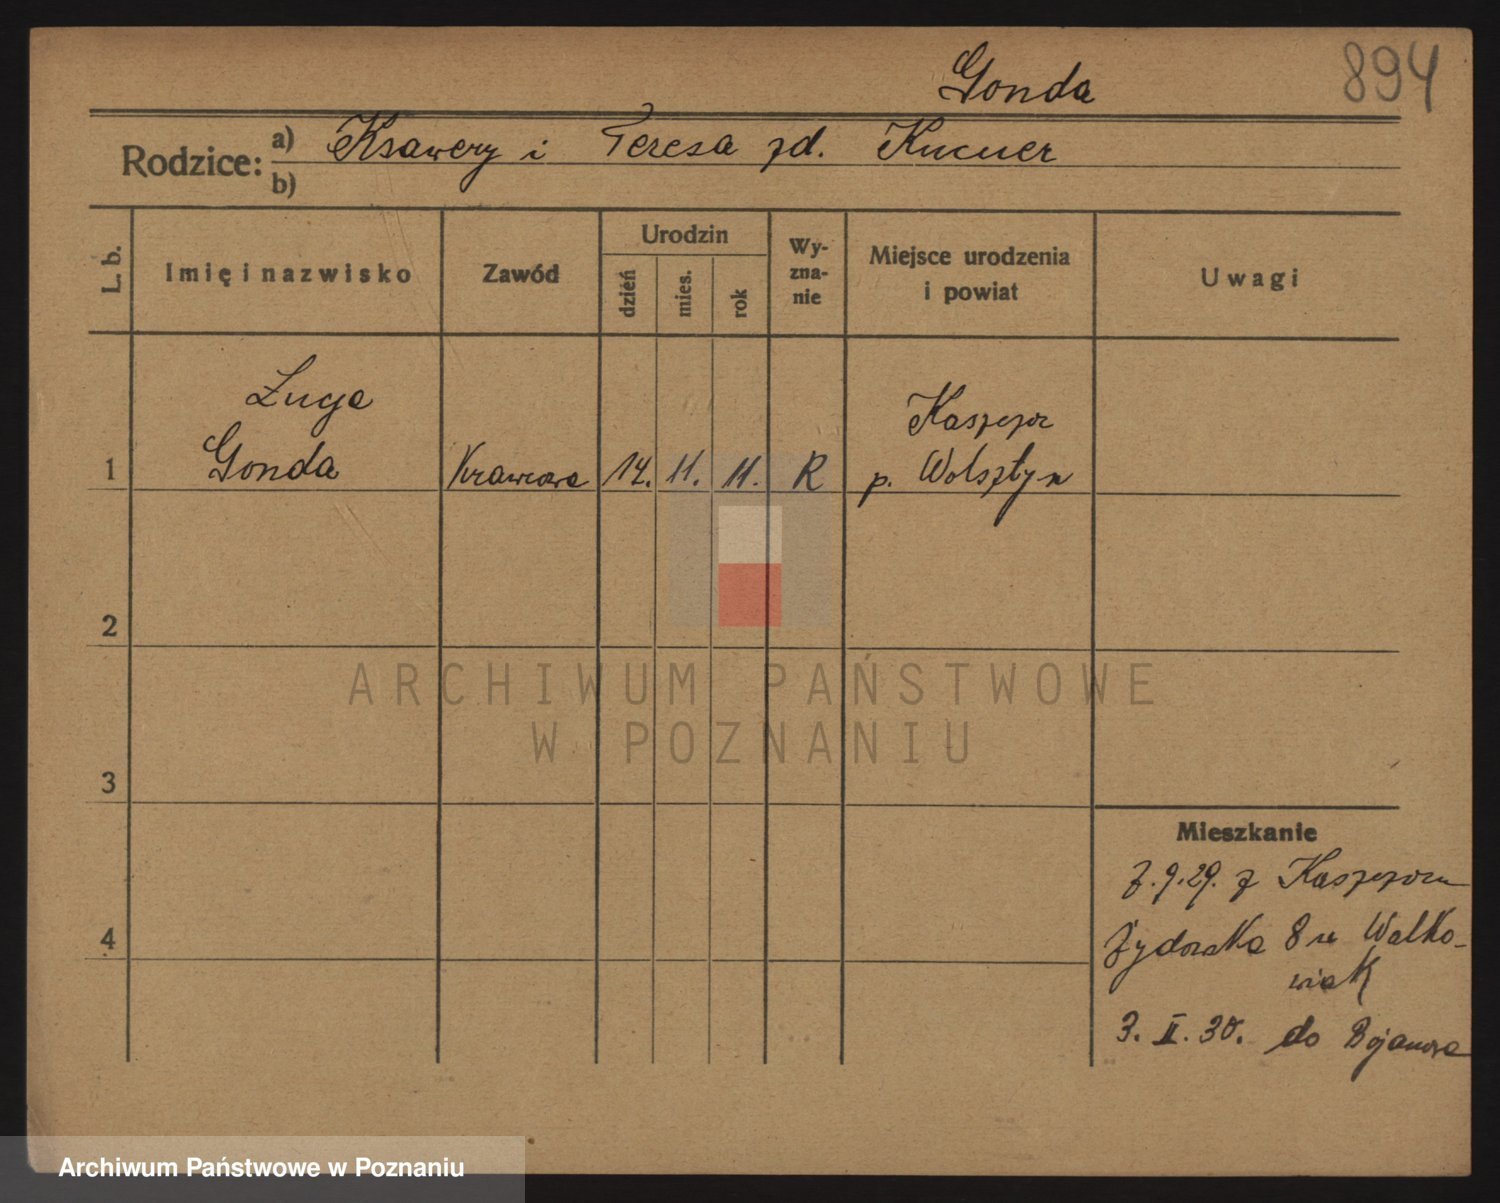 Gonda
894
Rodzice: a) Ksawery i Teresa zd. Kucner
b)
L. b.
Imię i nazwisko
Zawód
Urodzin
dzień
mies.
rok
Wy-
zna-
nie
Miejsce urodzenia
i powiat
Uwagi
1
Łucja
Gonda
Krawcowa
14. 11. 11.
R
Kaszczor
p. Wolsztyn
2
3
4
Mieszkanie
7.9.29. z Kaszczoru
8 u Walko-
wiak
3. II. 30. do Bojanowa
ARCHIWUM PAŃSTWOWE
W POZNANIU
Archiwum Państwowe w Poznaniu